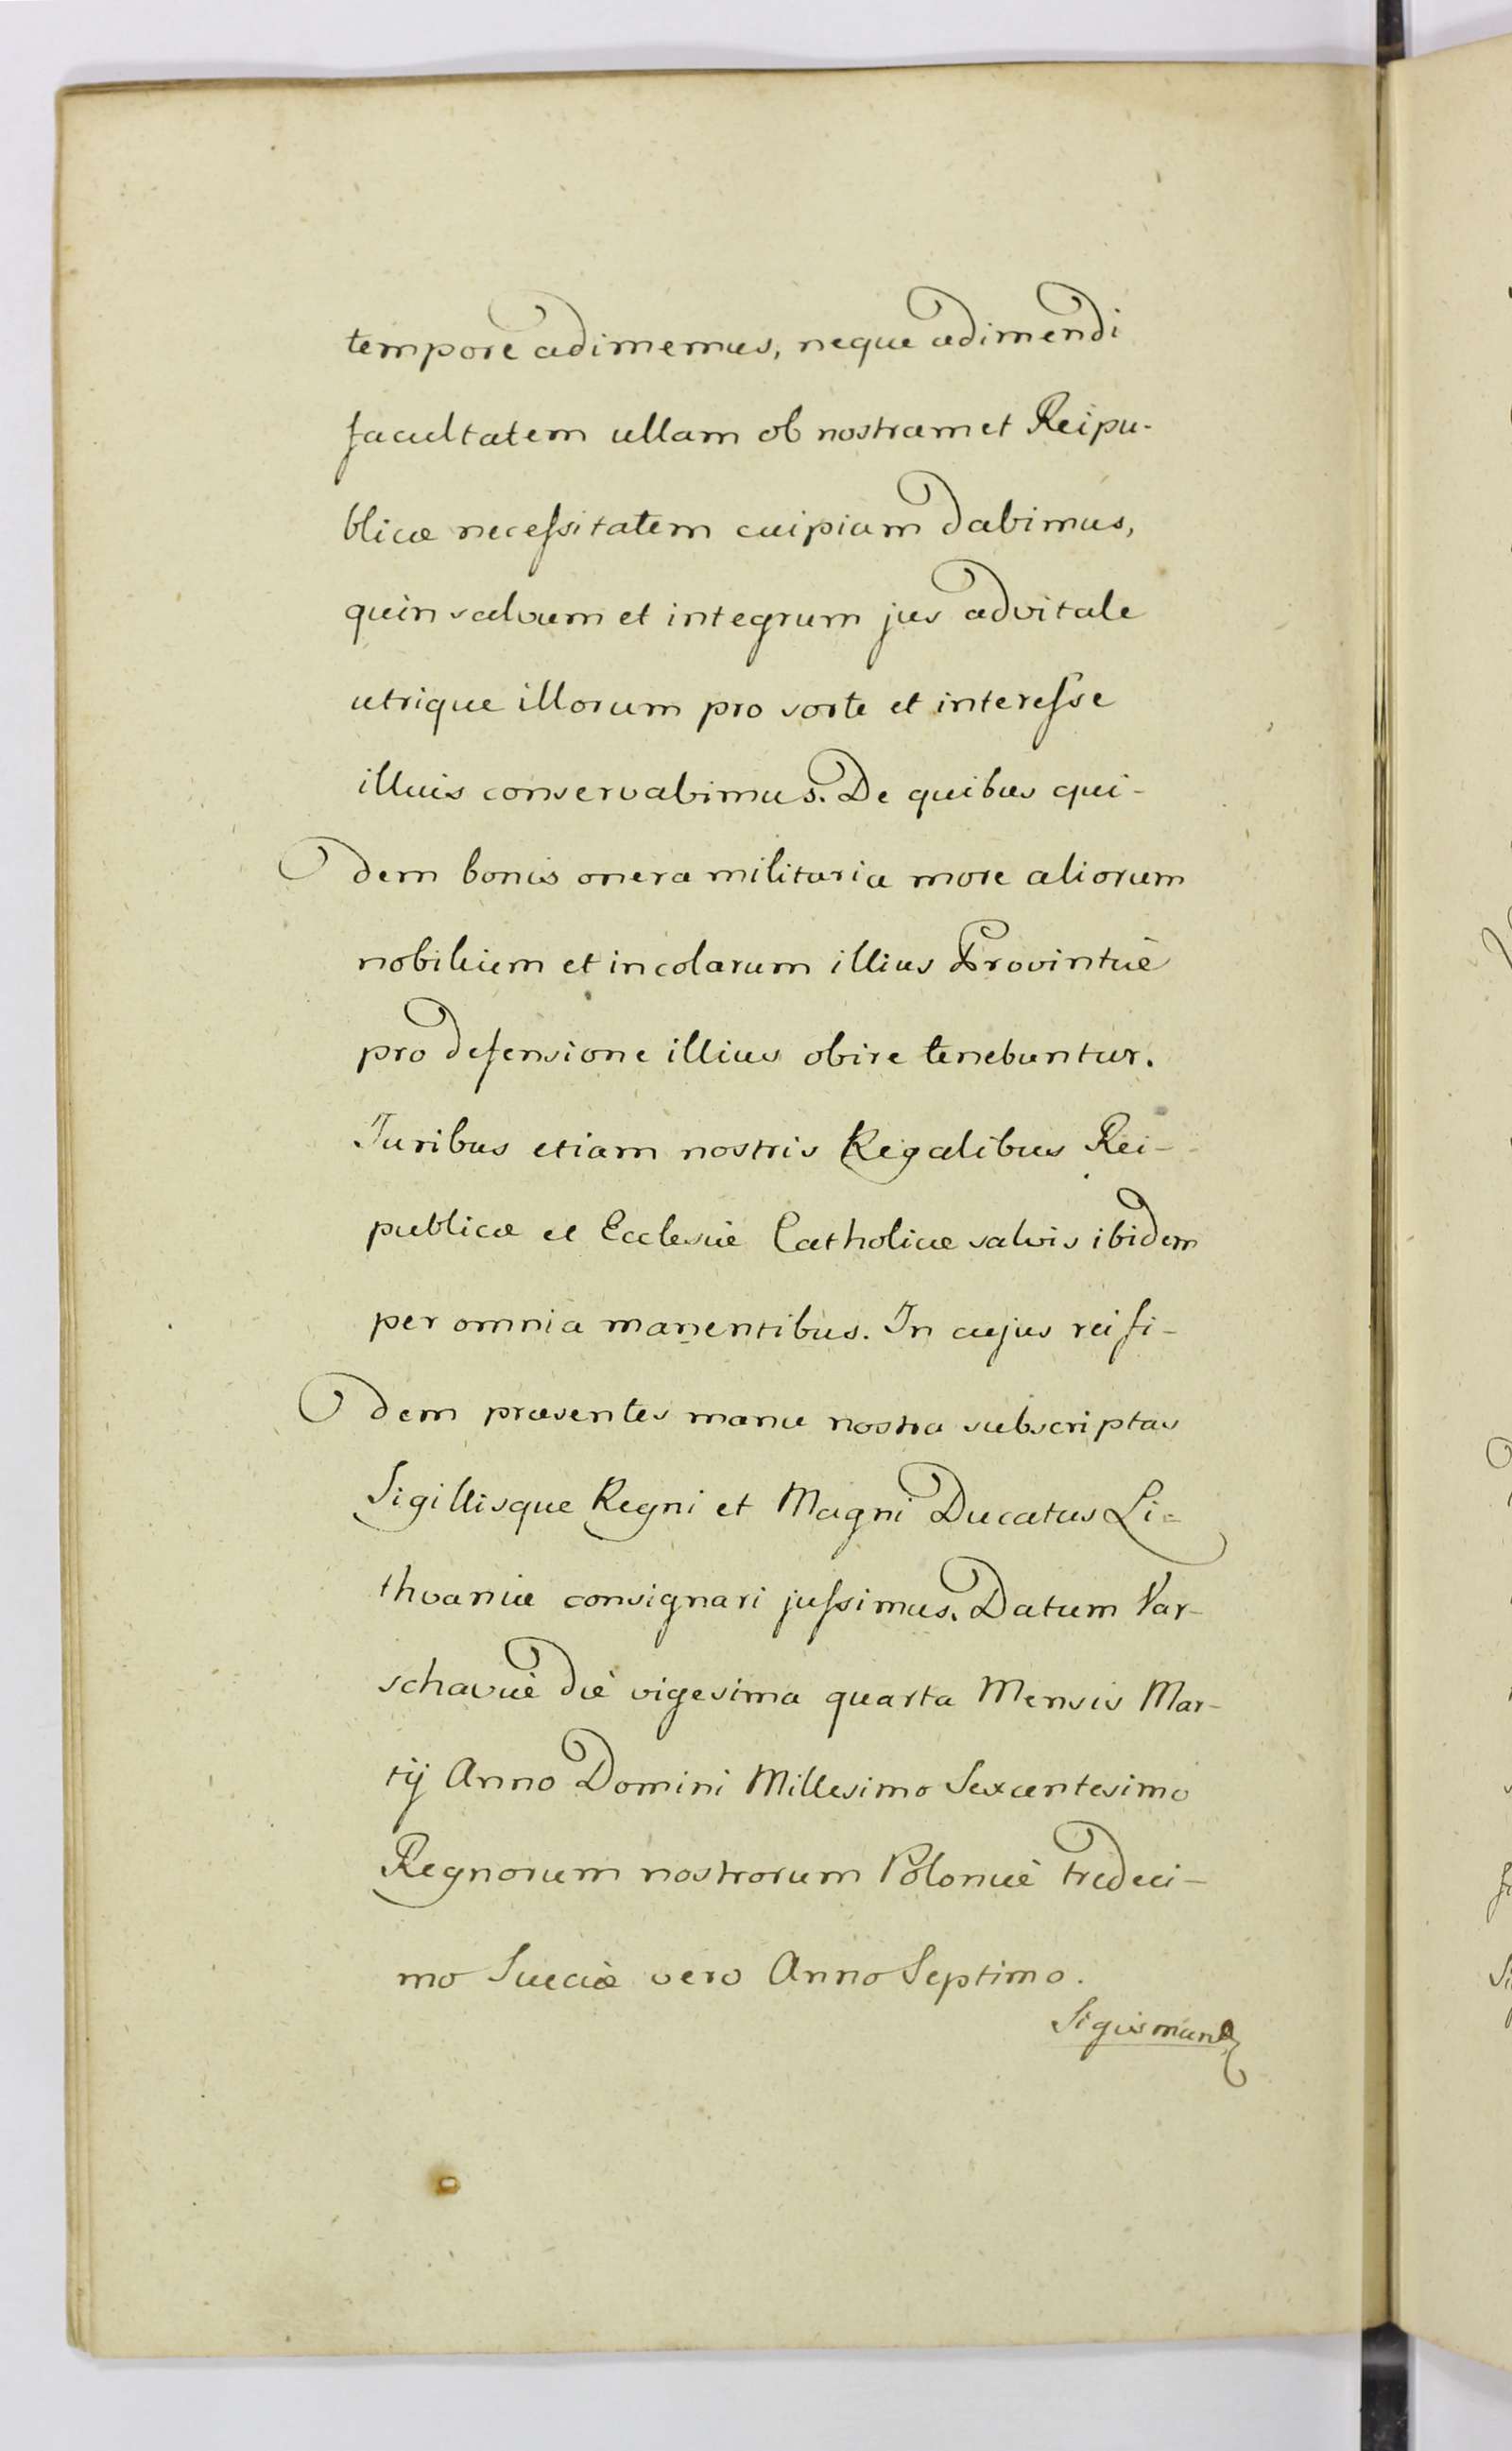 tempore adimemus, neque adimendi
facultatem ullam ob nostram et Reipu-
blicæ necessitatem cuipiam dabimus,
quin salvum et integrum jus advitale
utrique illorum pro sorte et interesse
illius conservabimus. De quibus qui-
dem bonis onera militaria more aliorum
nobilium et incolarum illius Provintiæ
pro defensione illius obire tenebuntur.
Juribus etiam nostris Regalibus Rei-
publicæ et Ecclesiæ Catholicæ salvis ibidem
per omnia manentibus. In cujus rei fi-
dem præsentes manu nostra subscriptas
Sigillisque Regni et Magni Ducatus Li=
thvaniæ consignari jussimus. Datum Var-
schaviæ die vigesima quarta Mensis Mar-
tij Anno Domini Millesimo Sexcentesimo
Regnorum nostrorum Poloniæ tredeci-
mo Sueciæ vero Anno Septimo.
Sigismund